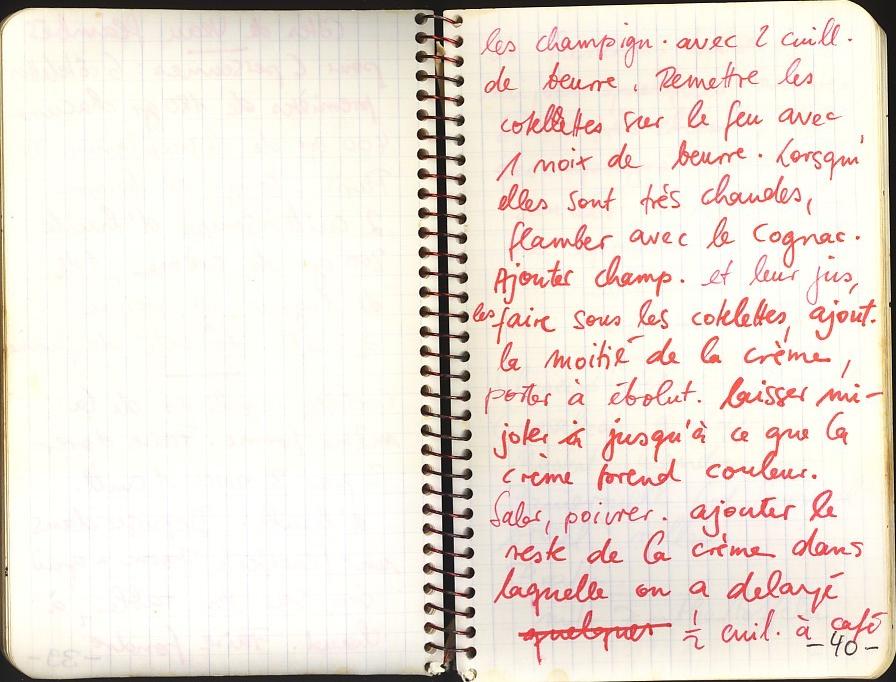 les champign. avec 2 cuill.
de beurre. Remettre les
cotelettes sur le feu avec
1 noix de beurre. Lorsqu'
elles sont très chaudes,
flamber avec le Cognac.
Ajouter champ. et leur jus,
les faire sous les cotelettes, ajout.
la moitié de la crème,
porter à ébolut. laisser mi-
joter à jusqu'à ce que la
crème prend couleur.
Saler, poivrer. ajouter le
reste de la crème dans
laquelle on a delayé
quelques 1/2 cuil. à café
-40-